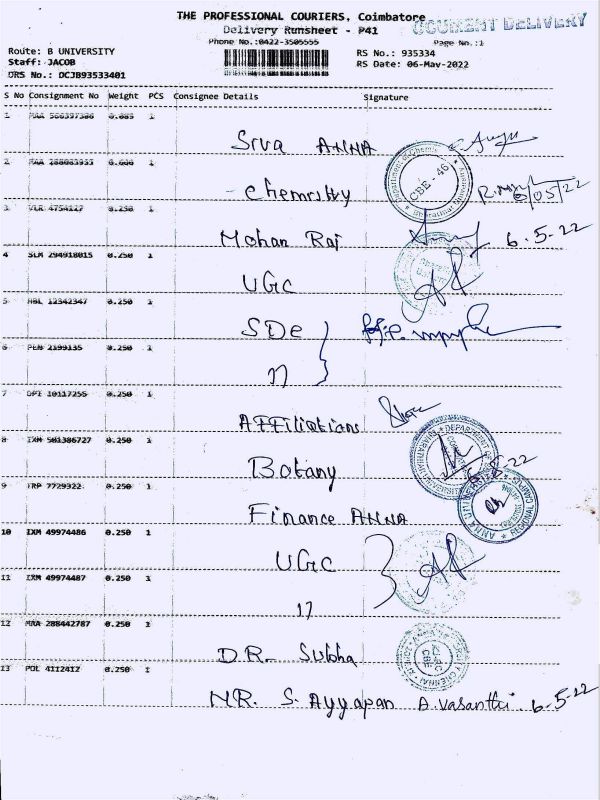 THE PROFESSIONAL COURIERS, Coimbatore
DOCUMENT DELIVERY
Delivery Runsheet - P41
Phone No.:0422-3505555
Page No.:1
Route: B UNIVERSITY
Staff: JACOB
DRS No.: DCJB93533401
RS No.: 935334
RS Date: 06-May-2022
S No Consignment No Weight PCS Consignee Details Signature
1 MAA 0.085 1
Siva ANNA
2 MAA 288083935 0.000 1
Chemistry CBE - 46 6/05/22
3 VLR 4754127 0.250 1
Mohan Raj 6.5.22
4 SLM 294918015 0.250 1
UGC
5 NBL 12342347 0.250 1
SDE
6 PEN 2199135 0.250 1
11
7 OPI 10117256 0.250 1
Affiliations
8 IXM 501386727 0.250 1
Botany 6.5.22
9 TRP 7729322 0.250 1
Finance ANNA
10 IXM 49974486 0.250 1
UGC
11 IXM 49974487 0.250 1
11
12 MAA 288442787 0.250 1
D.R. Subha
13 POL 4112412 0.250 1
MR. S. Ayyapan A.Vasanthi. 6.5.22